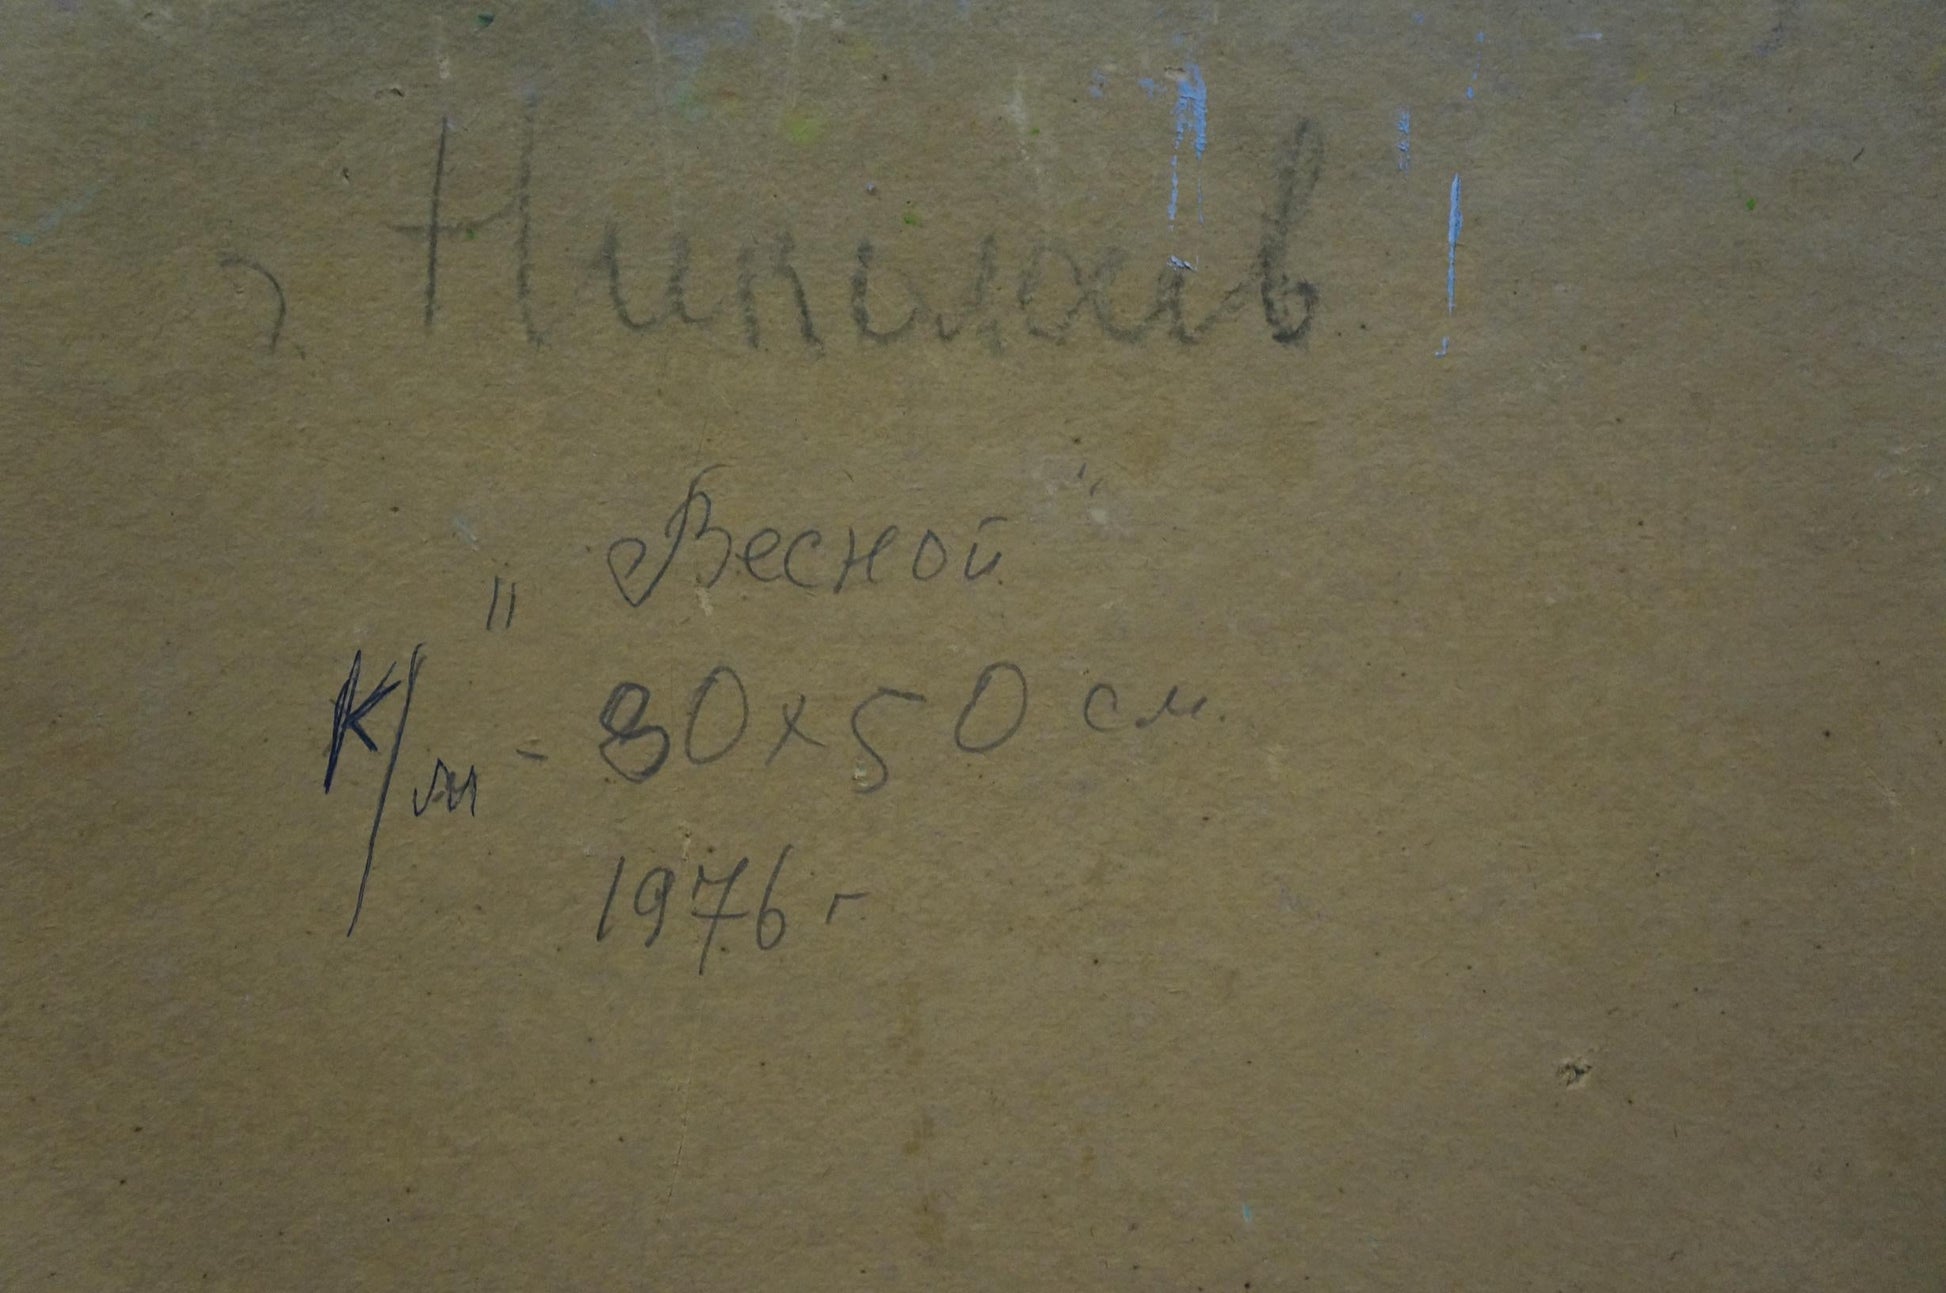 г. Николаев
"Весной"
К/м - 80х50 см.
1976 г